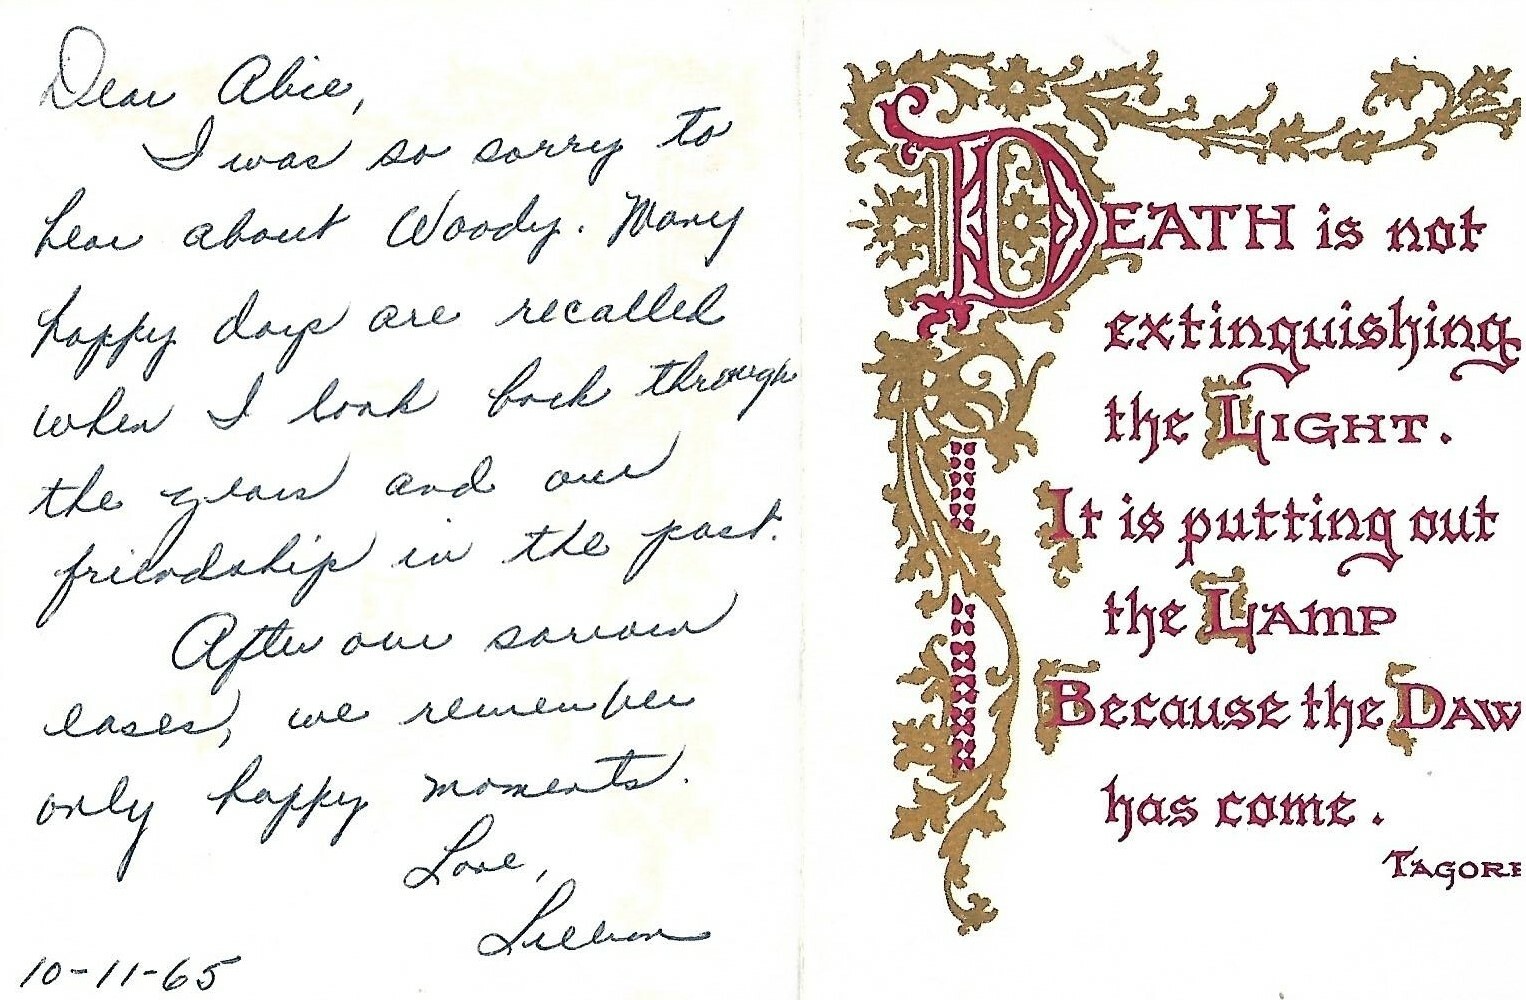 Dear Alice,
I was so sorry to
hear about Woody. Many
happy days are recalled
when I look back through
the years and our
friendship in the past.
After our sorrow
eases, we remember
only happy moments.
Love,
Lillian
10-11-65
DEATH is not
extinguishing
the LIGHT.
It is putting out
the LAMP
Because the DAW
has come.
TAGORE